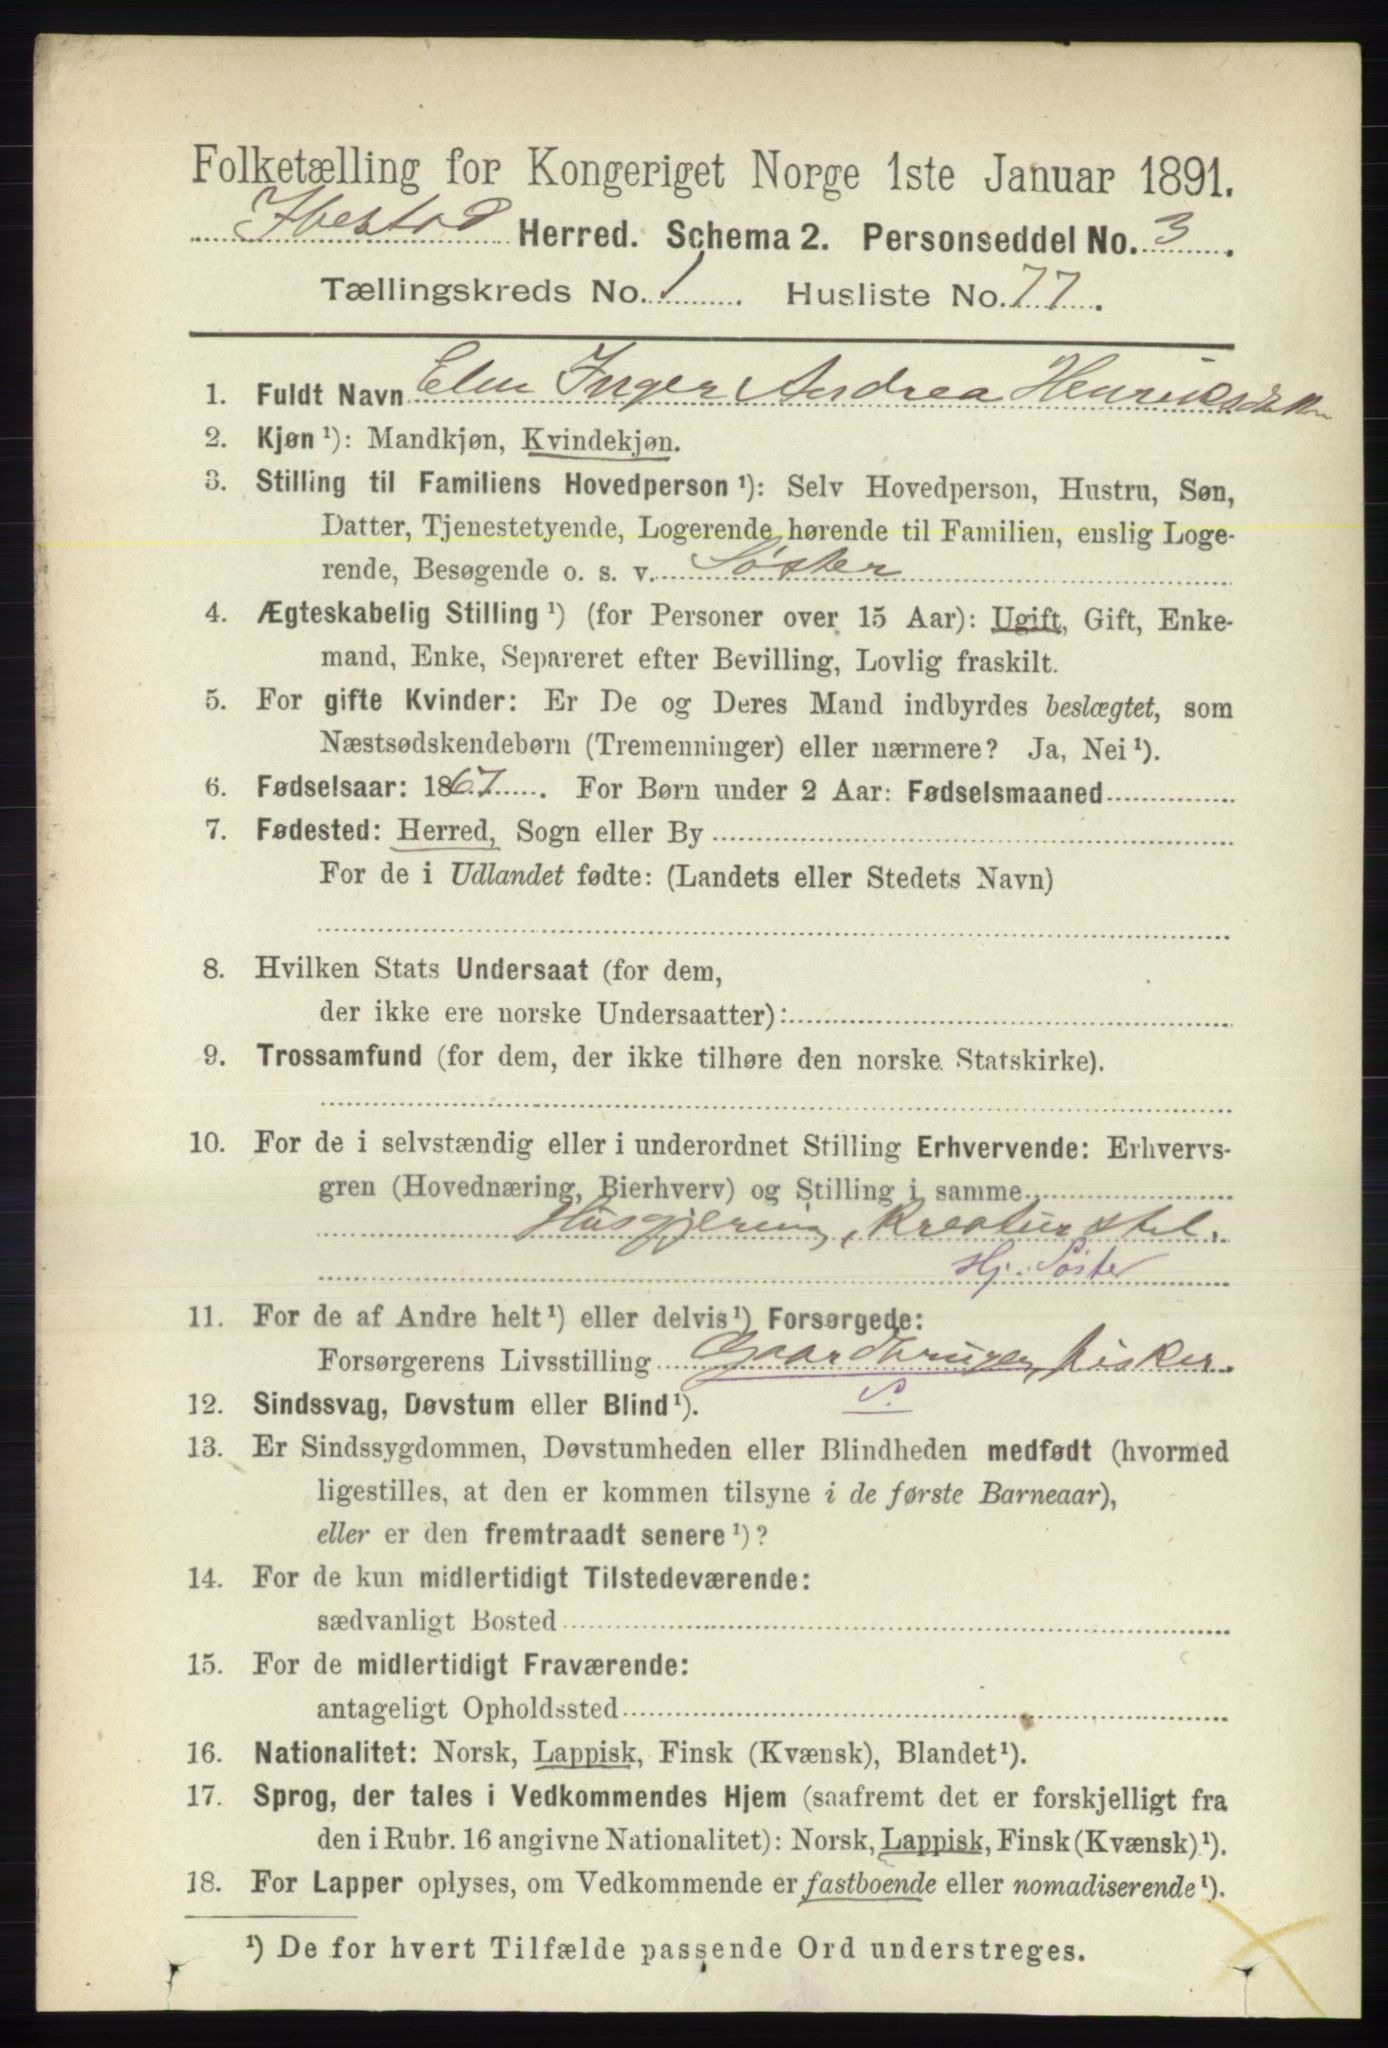 Folketælling for Kongeriget Norge 1ste Januar 1891.
Ibestad Herred. Schema 2. Personseddel No. 3.
Tællingskreds No. 1. Husliste No. 77.
1. Fuldt Navn Elen Inger Andrea Henriksdatter
2. Kjøn ¹): Mandkjøn, Kvindekjøn.
3. Stilling til Familiens Hovedperson ¹): Selv Hovedperson, Hustru, Søn,
Datter, Tjenestetyende, Logerende hørende til Familien, enslig Loge-
rende, Besøgende o. s. v. Søster
4. Ægteskabelig Stilling ¹) (for Personer over 15 Aar): Ugift, Gift, Enke-
mand, Enke, Separeret efter Bevilling, Lovlig fraskilt.
5. For gifte Kvinder: Er De og Deres Mand indbyrdes beslægtet, som
Næstsødskendebørn (Tremenninger) eller nærmere? Ja, Nei ¹).
6. Fødselsaar: 1867. For Børn under 2 Aar: Fødselsmaaned
7. Fødested: Herred, Sogn eller By
For de i Udlandet fødte: (Landets eller Stedets Navn)
8. Hvilken Stats Undersaat (for dem,
der ikke ere norske Undersaatter):
9. Trossamfund (for dem, der ikke tilhøre den norske Statskirke).
10. For de i selvstændig eller i underordnet Stilling Erhvervende: Erhvervs-
gren (Hovednæring, Bierhverv) og Stilling i samme
Husgjerning, Kreaturstel.
Hj. Søster
11. For de af Andre helt ¹) eller delvis ¹) Forsørgede:
Forsørgerens Livsstilling Gaardbruger, Fisker.
S.
12. Sindssvag, Døvstum eller Blind ¹).
13. Er Sindssygdommen, Døvstumheden eller Blindheden medfødt (hvormed
ligestilles, at den er kommen tilsyne i de første Barneaar),
eller er den fremtraadt senere ¹)?
14. For de kun midlertidigt Tilstedeværende:
sædvanligt Bosted
15. For de midlertidigt Fraværende:
antageligt Opholdssted
16. Nationalitet: Norsk, Lappisk, Finsk (Kvænsk), Blandet ¹).
17. Sprog, der tales i Vedkommendes Hjem (saafremt det er forskjelligt fra
den i Rubr. 16 angivne Nationalitet): Norsk, Lappisk, Finsk (Kvænsk) ¹).
18. For Lapper oplyses, om Vedkommende er fastboende eller nomadiserende ¹).
¹) De for hvert Tilfælde passende Ord understreges.